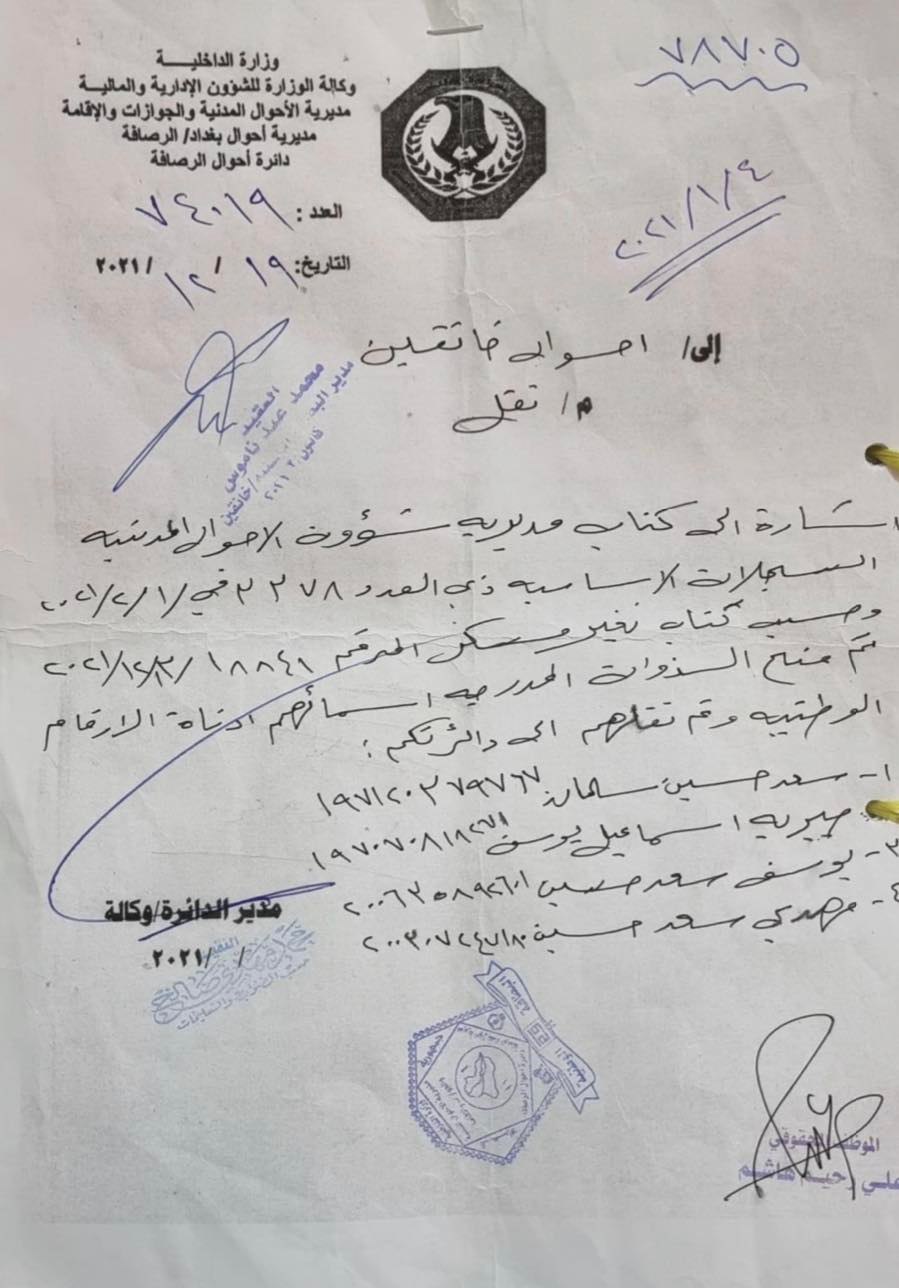 وزارة الداخليـــة
وكالة الوزارة للشؤون الإدارية والماليـة
مديرية الأحوال المدنية والجوازات والإقامة
مديرية أحوال بغداد/ الرصافة
دائرة أحوال الرصافة
العدد : ٧٤٠١٩
التاريخ: ١٩ / ١٢ /٢٠٢١
٧٨٧٠٥
٢٠٢١/١/٤
إلى/ احوال خانقين
م/ نقل
العقيد
محمد عبد ناموس
اشارة الى كتاب مديرية شؤون الاحوال المدنية
السجلات الاساسية ذي العدد ٣٣٧٨ في ٢٠٢١/٢/١
وحسب كتاب تغير مسكن المرقم ١٨٨٤١
تم منح الذوات المدرجه اسمائهم ادناة الارقام
الوطنيه وتم نقلهم الى دائرتكم :
١- سعد حسين سلمان ١٩٧١٢٠٣٧٩٧٦٧
صبريه اسماعيل يوسف
٣- يوسف سعد حسين
٤- مهدي سعد حسين
مدير الدائرة/وكالة
/ /٢٠٢١
البطاقة
الوطنية
الموظف الحقوقي
علي رحيم هاشم